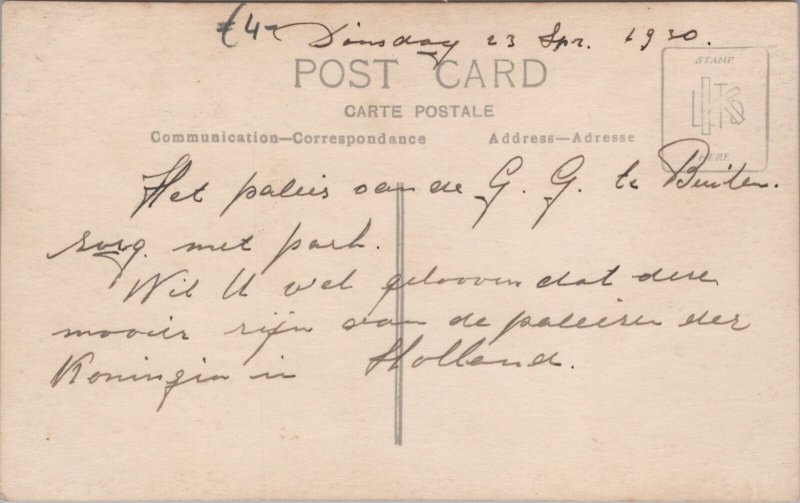 £4- Dinsdag 23 Spr. 1930.
POST CARD
STAMP
CARTE POSTALE
LTKS
Communication—Correspondance Address—Adresse
HERE
Het paleis van de G. G. te Buiten-
zorg. met park.
Wil U wel gelooven dat deze
mooier zijn dan de paleizen der
Koningin in Holland.